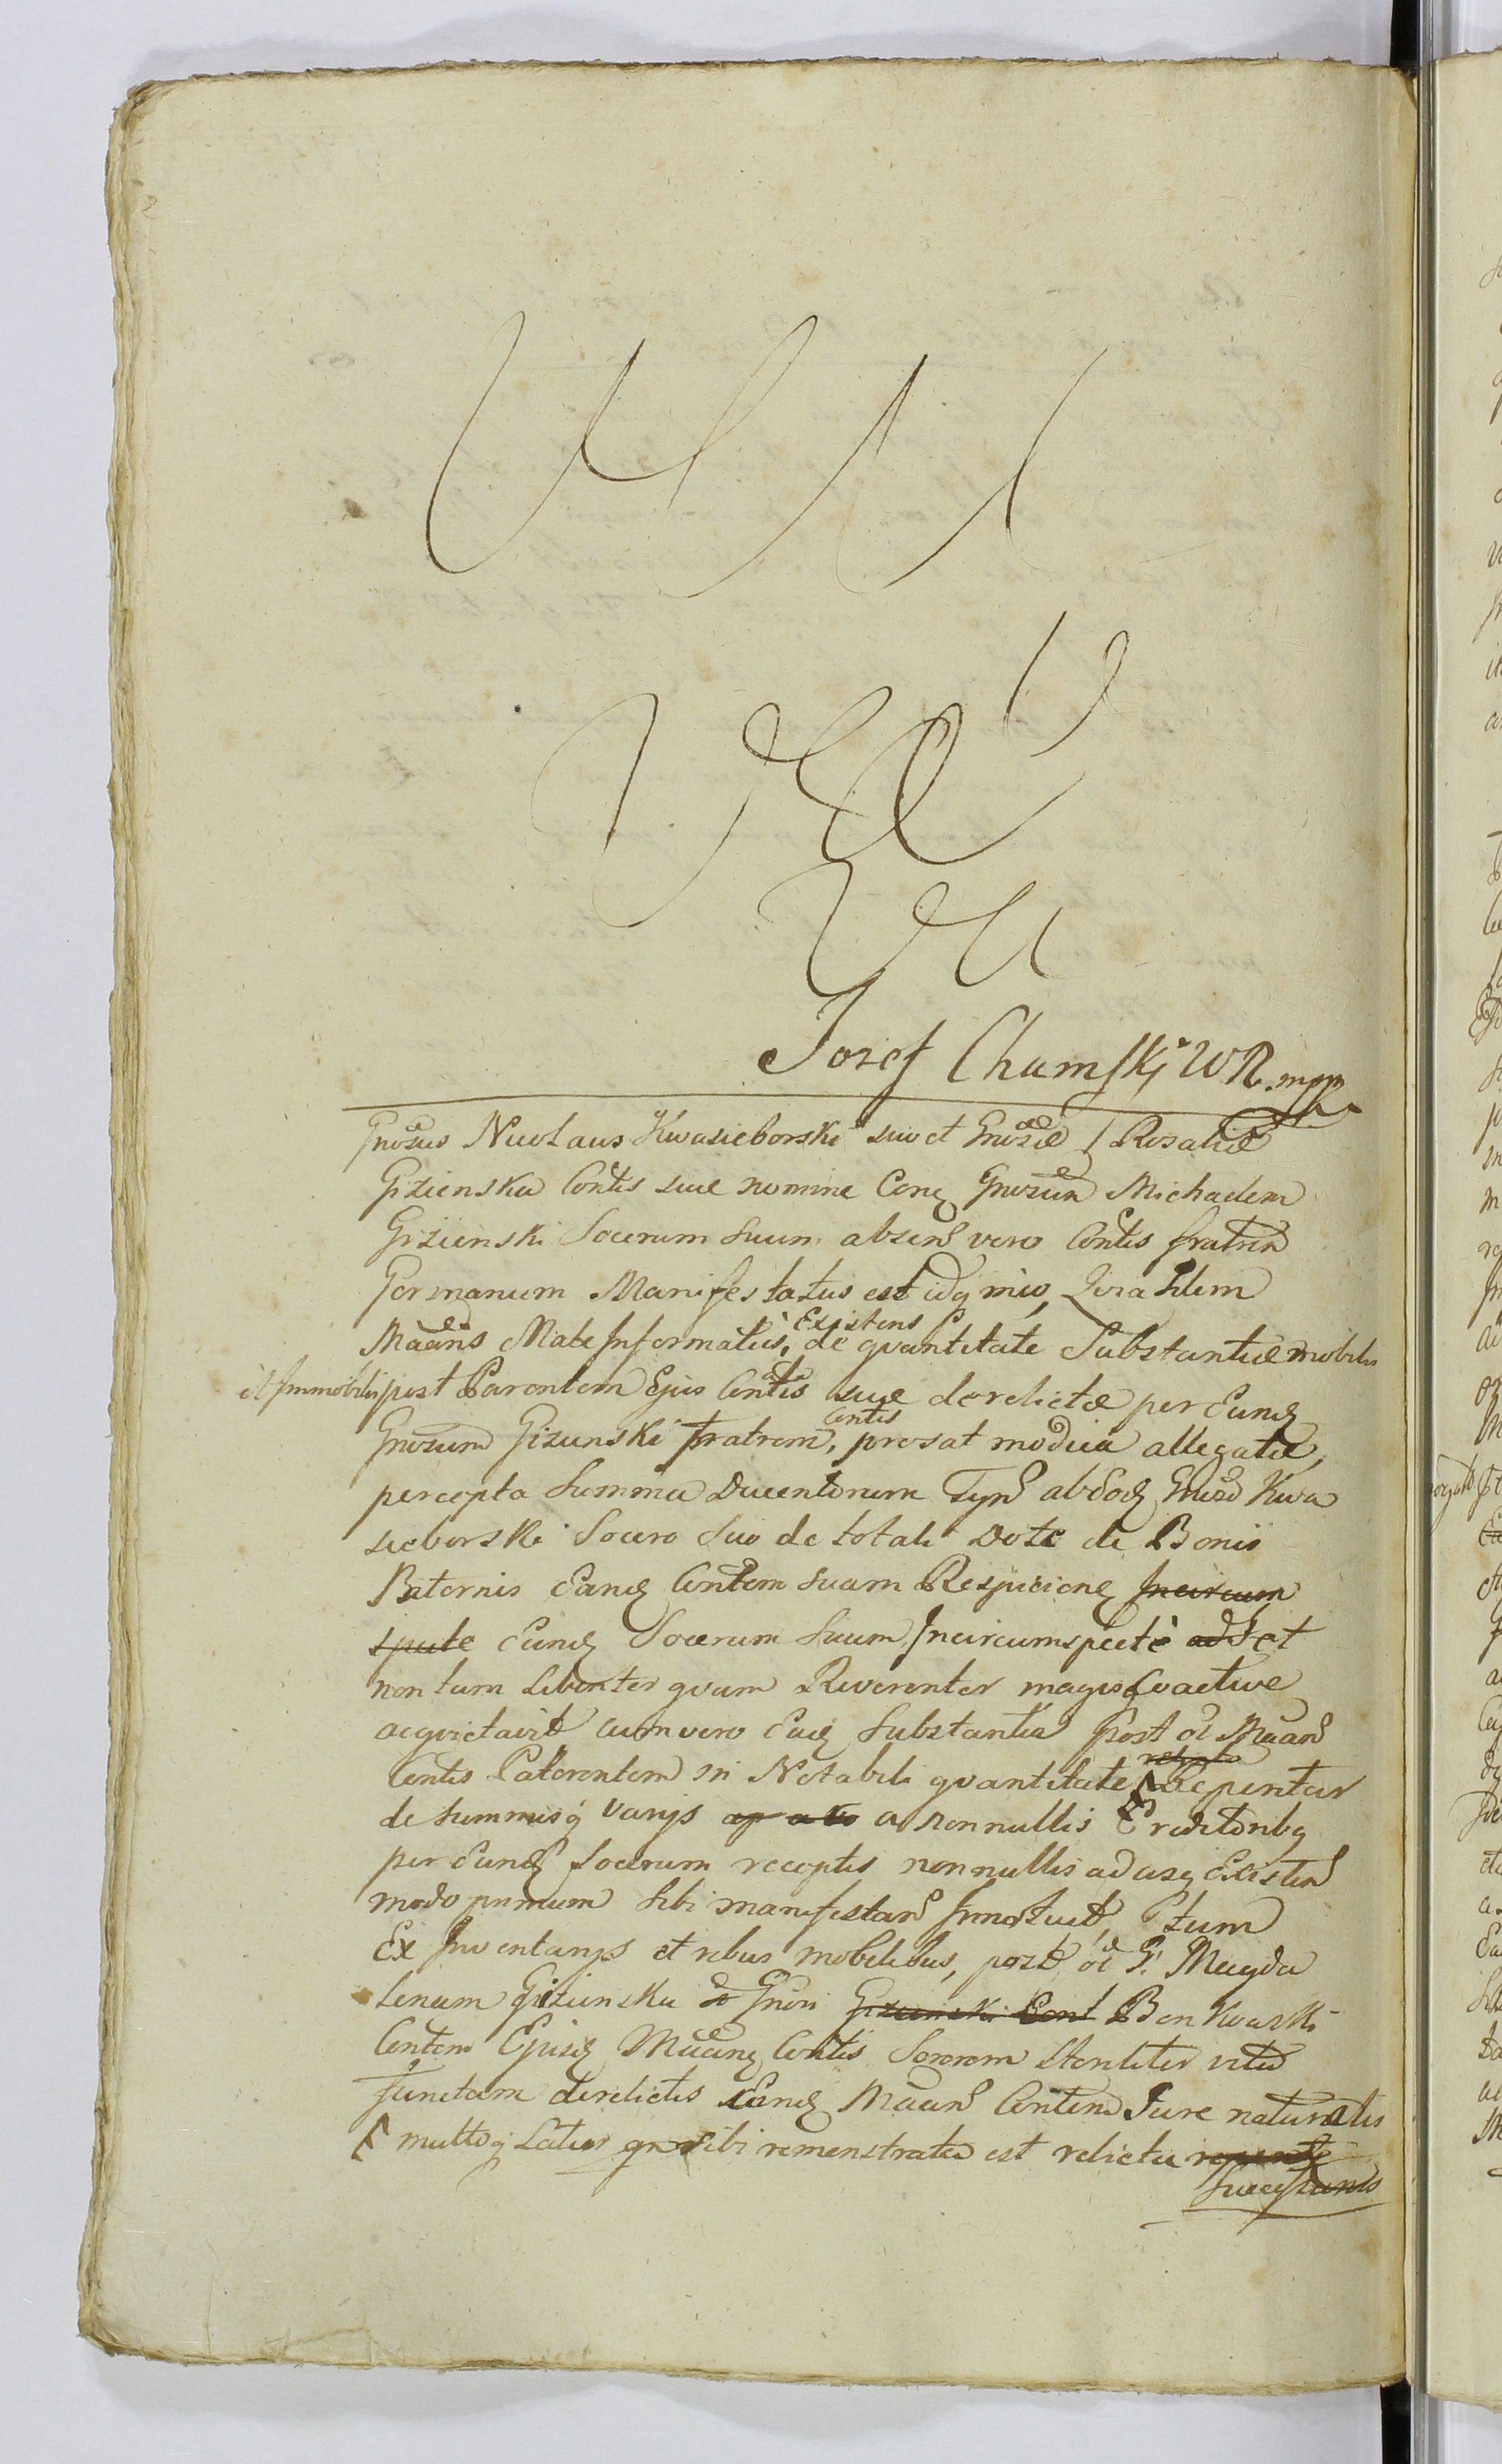 Jozef Chamski WR. mpp
Gnosus Nicolaus Kwasieborski suo et Gnosæ Rosaliæ
Gizienska Contis suæ nomine Conq Gnosum Michaelem
Gizienski Socerum Suum absens vero Contis fratrem
Germanum Manifestatus est idq nio, Quia Idem
Maans Male Informatus, Existens de quantitate Substantiæ mobilis
et Immobilis post Parentem Ejus Contis suæ derelictæ per Eundq
Gnosum Gizienski Fratrem, Contis prosat modica allegata,
percepta Summa Ducentorum Tynf ab eodq Gnoso Kwa
sieborski Socero Suo de totali Dote de Bonis
Paternis Eandq Contem suam Respicienq Incircum
specte Eundq Socerum Suum Incircumspectè et
non tam Libenter quam Reverenter magisq Coactive
acquietavit cum vero Eadq Substantia Post Maans
Contis Parentem in Notabili quantitate relicta Reperitur
de Summisq varijs a nonnullis Creditoribq
per Eundq Socerum receptis nonnullis ad usq Existen
modo primum Sibi manifestans Innotuit, tum
Ex Inventarijs et rebus mobilibus, post G. Magda
lenam Gizienska Gnosi Gizienski Cont Bonkowski
Contem Ejusdq Maans Contis Sororem Steriliter vita
functam derelictis Eandq Maans Contem Jure naturalis
multoq Latius sibi remonstrata est relicta
Successionis